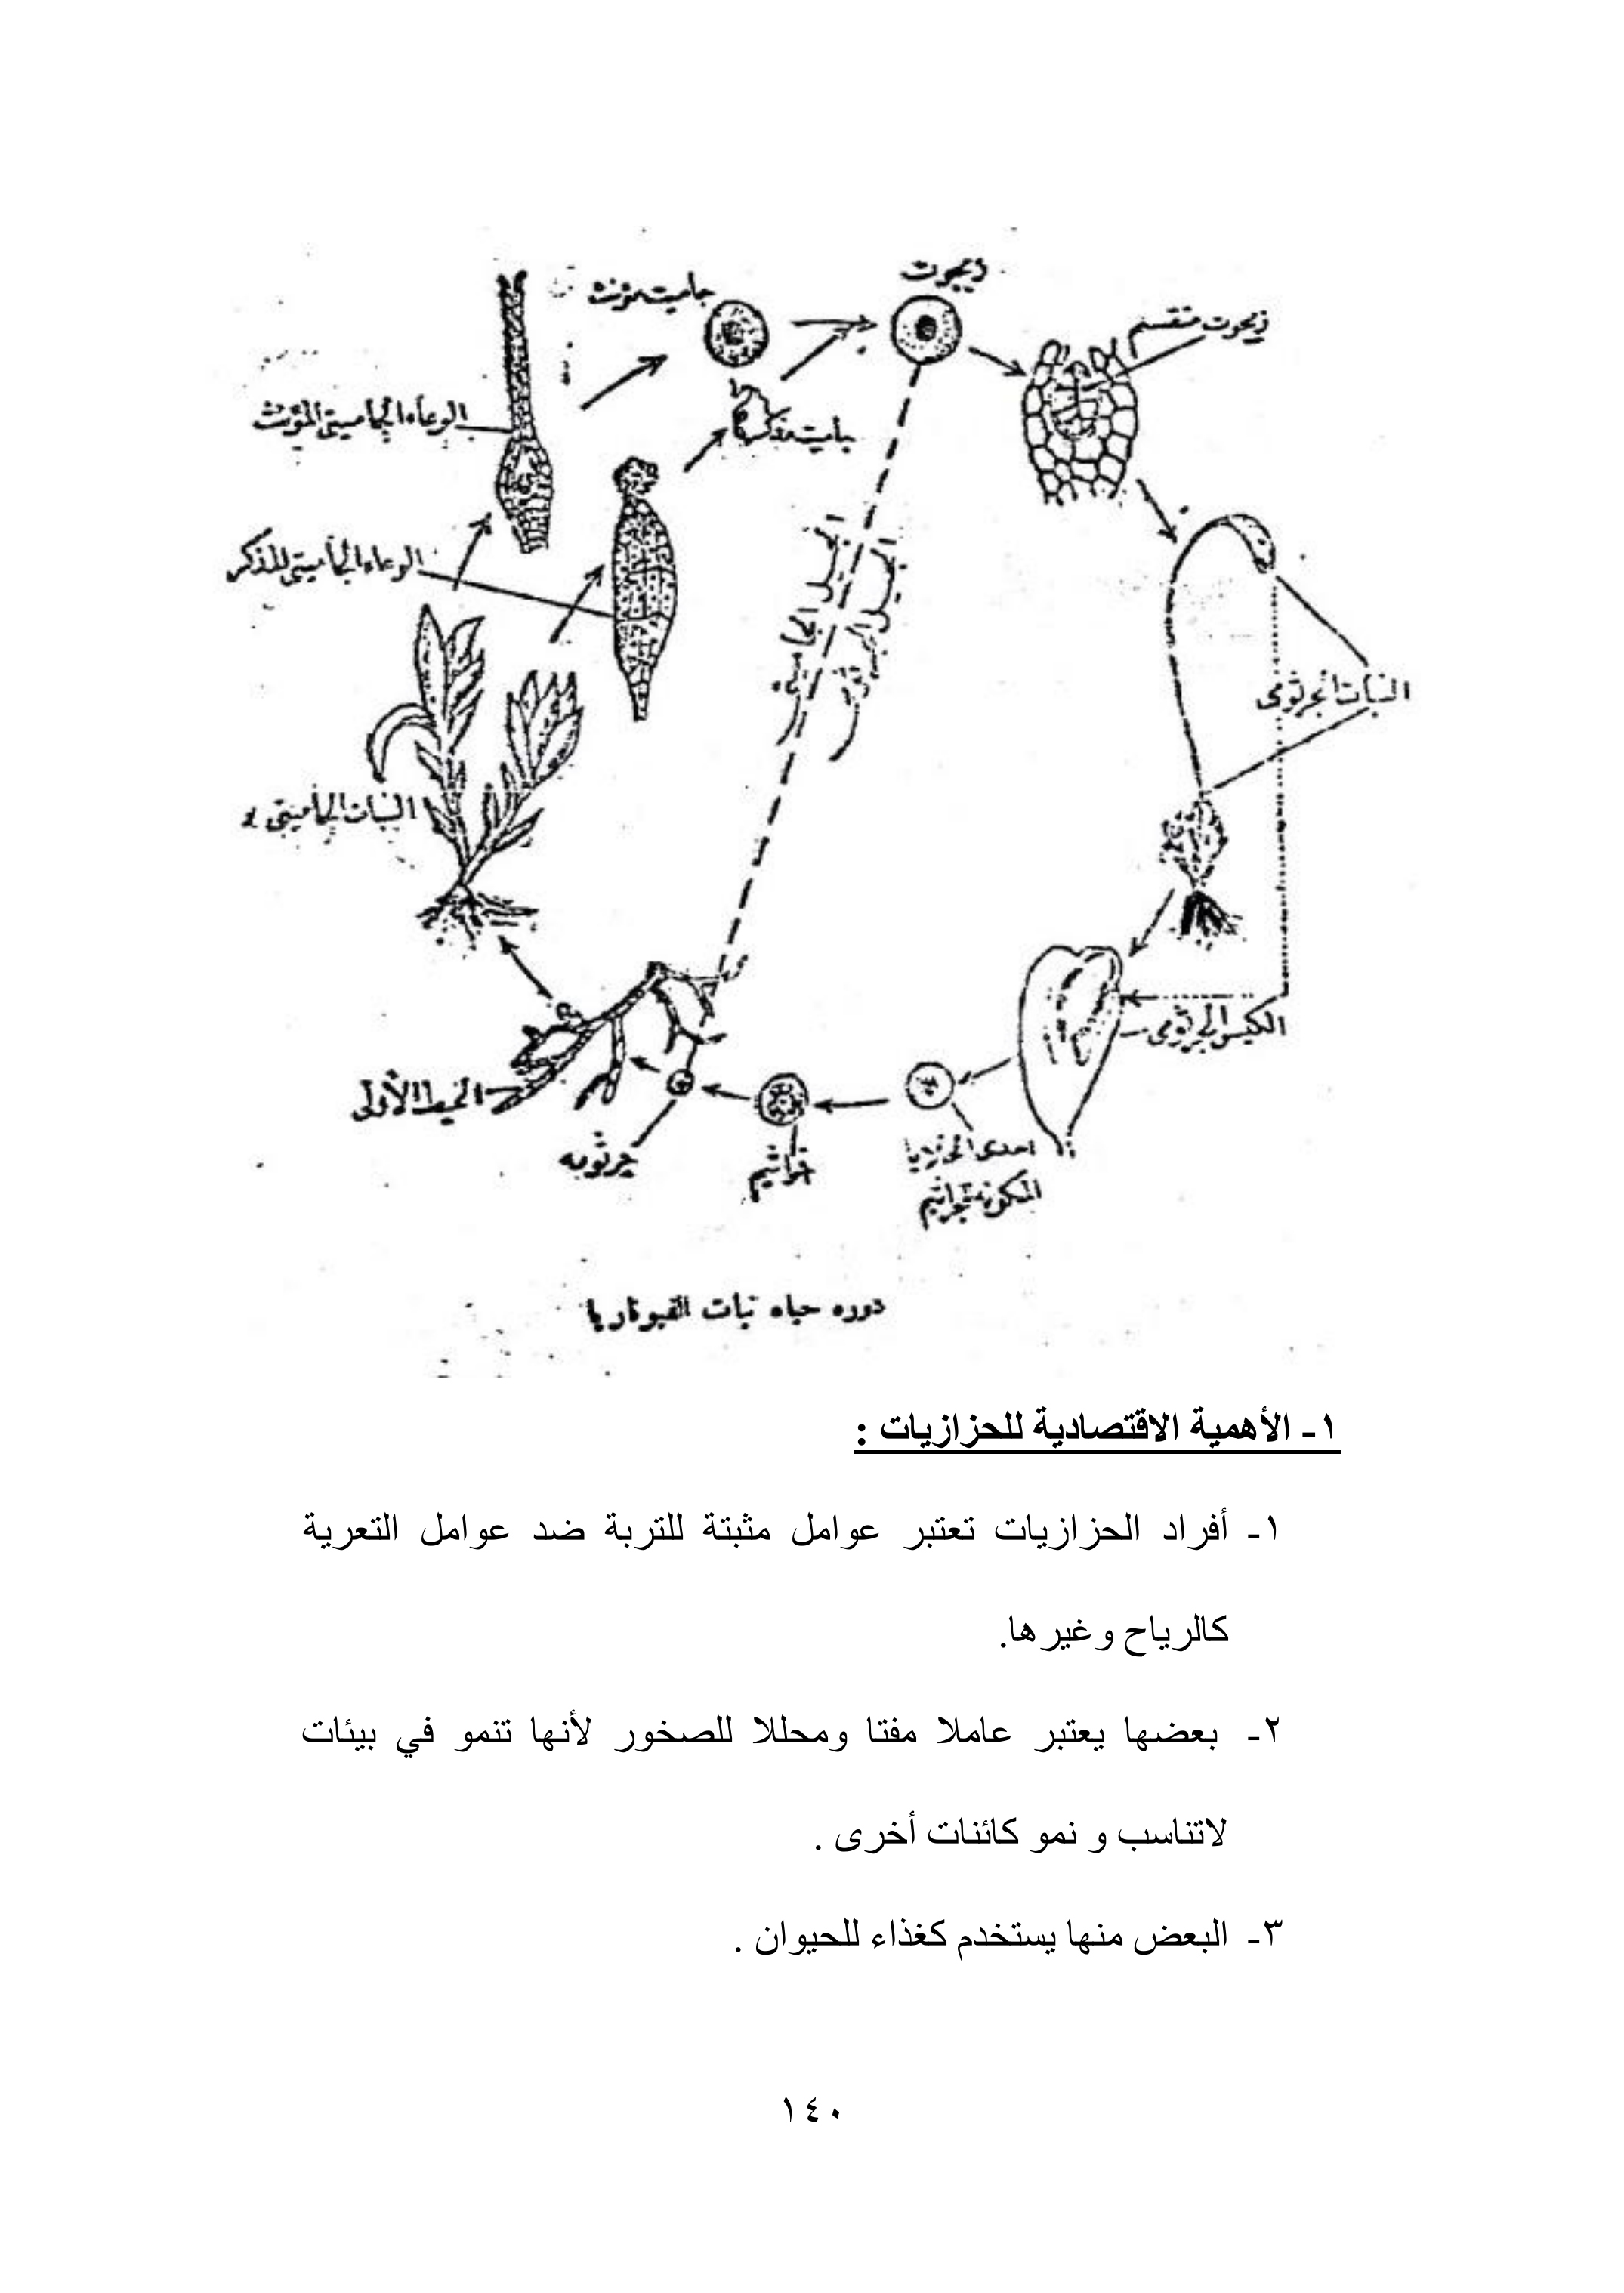 زيجوت
جاميت مؤنث
زيجوت منقسم
الوعاء الجاميتي المؤنث
جاميت مذكر
الوعاء الجاميتي المذكر
الجيل الجاميتي
الجيل الجرثومى
النبات الجرثومى
النبات الجاميتي
الكيس الجرثومى
الخيط الأولى
احدى الخلايا
المكونة للجراثيم
جراثيم
جرثومه
دوره حياه نبات الفيوناريا
١- الأهمية الاقتصادية للحزازيات :
١- أفراد الحزازيات تعتبر عوامل مثبتة للتربة ضد عوامل التعرية
كالرياح وغيرها.
٢- بعضها يعتبر عاملا مفتا ومحللا للصخور لأنها تنمو في بيئات
لاتناسب و نمو كائنات أخرى .
٣- البعض منها يستخدم كغذاء للحيوان .
١٤٠